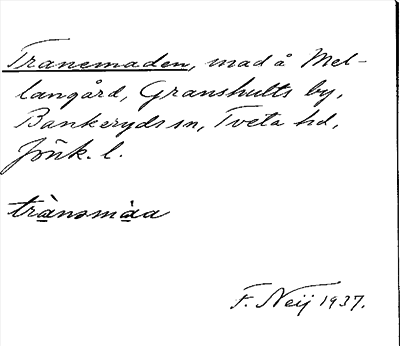 Tranemaden, mad å Mel-
langård, Granshults by,
Bankeryds sn, Tveta hd,
Jönk. l.
trànsmàa
F. Neij 1937.